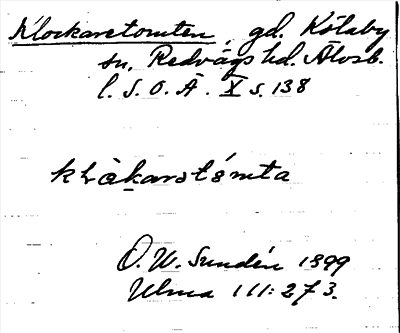 Klockaretomten, gd. Kölaby
sn, Redvägs hd. Älvsb.
l. S.O.Ä. X s. 138
O. W. Sundén 1899
Ulma 111:273.